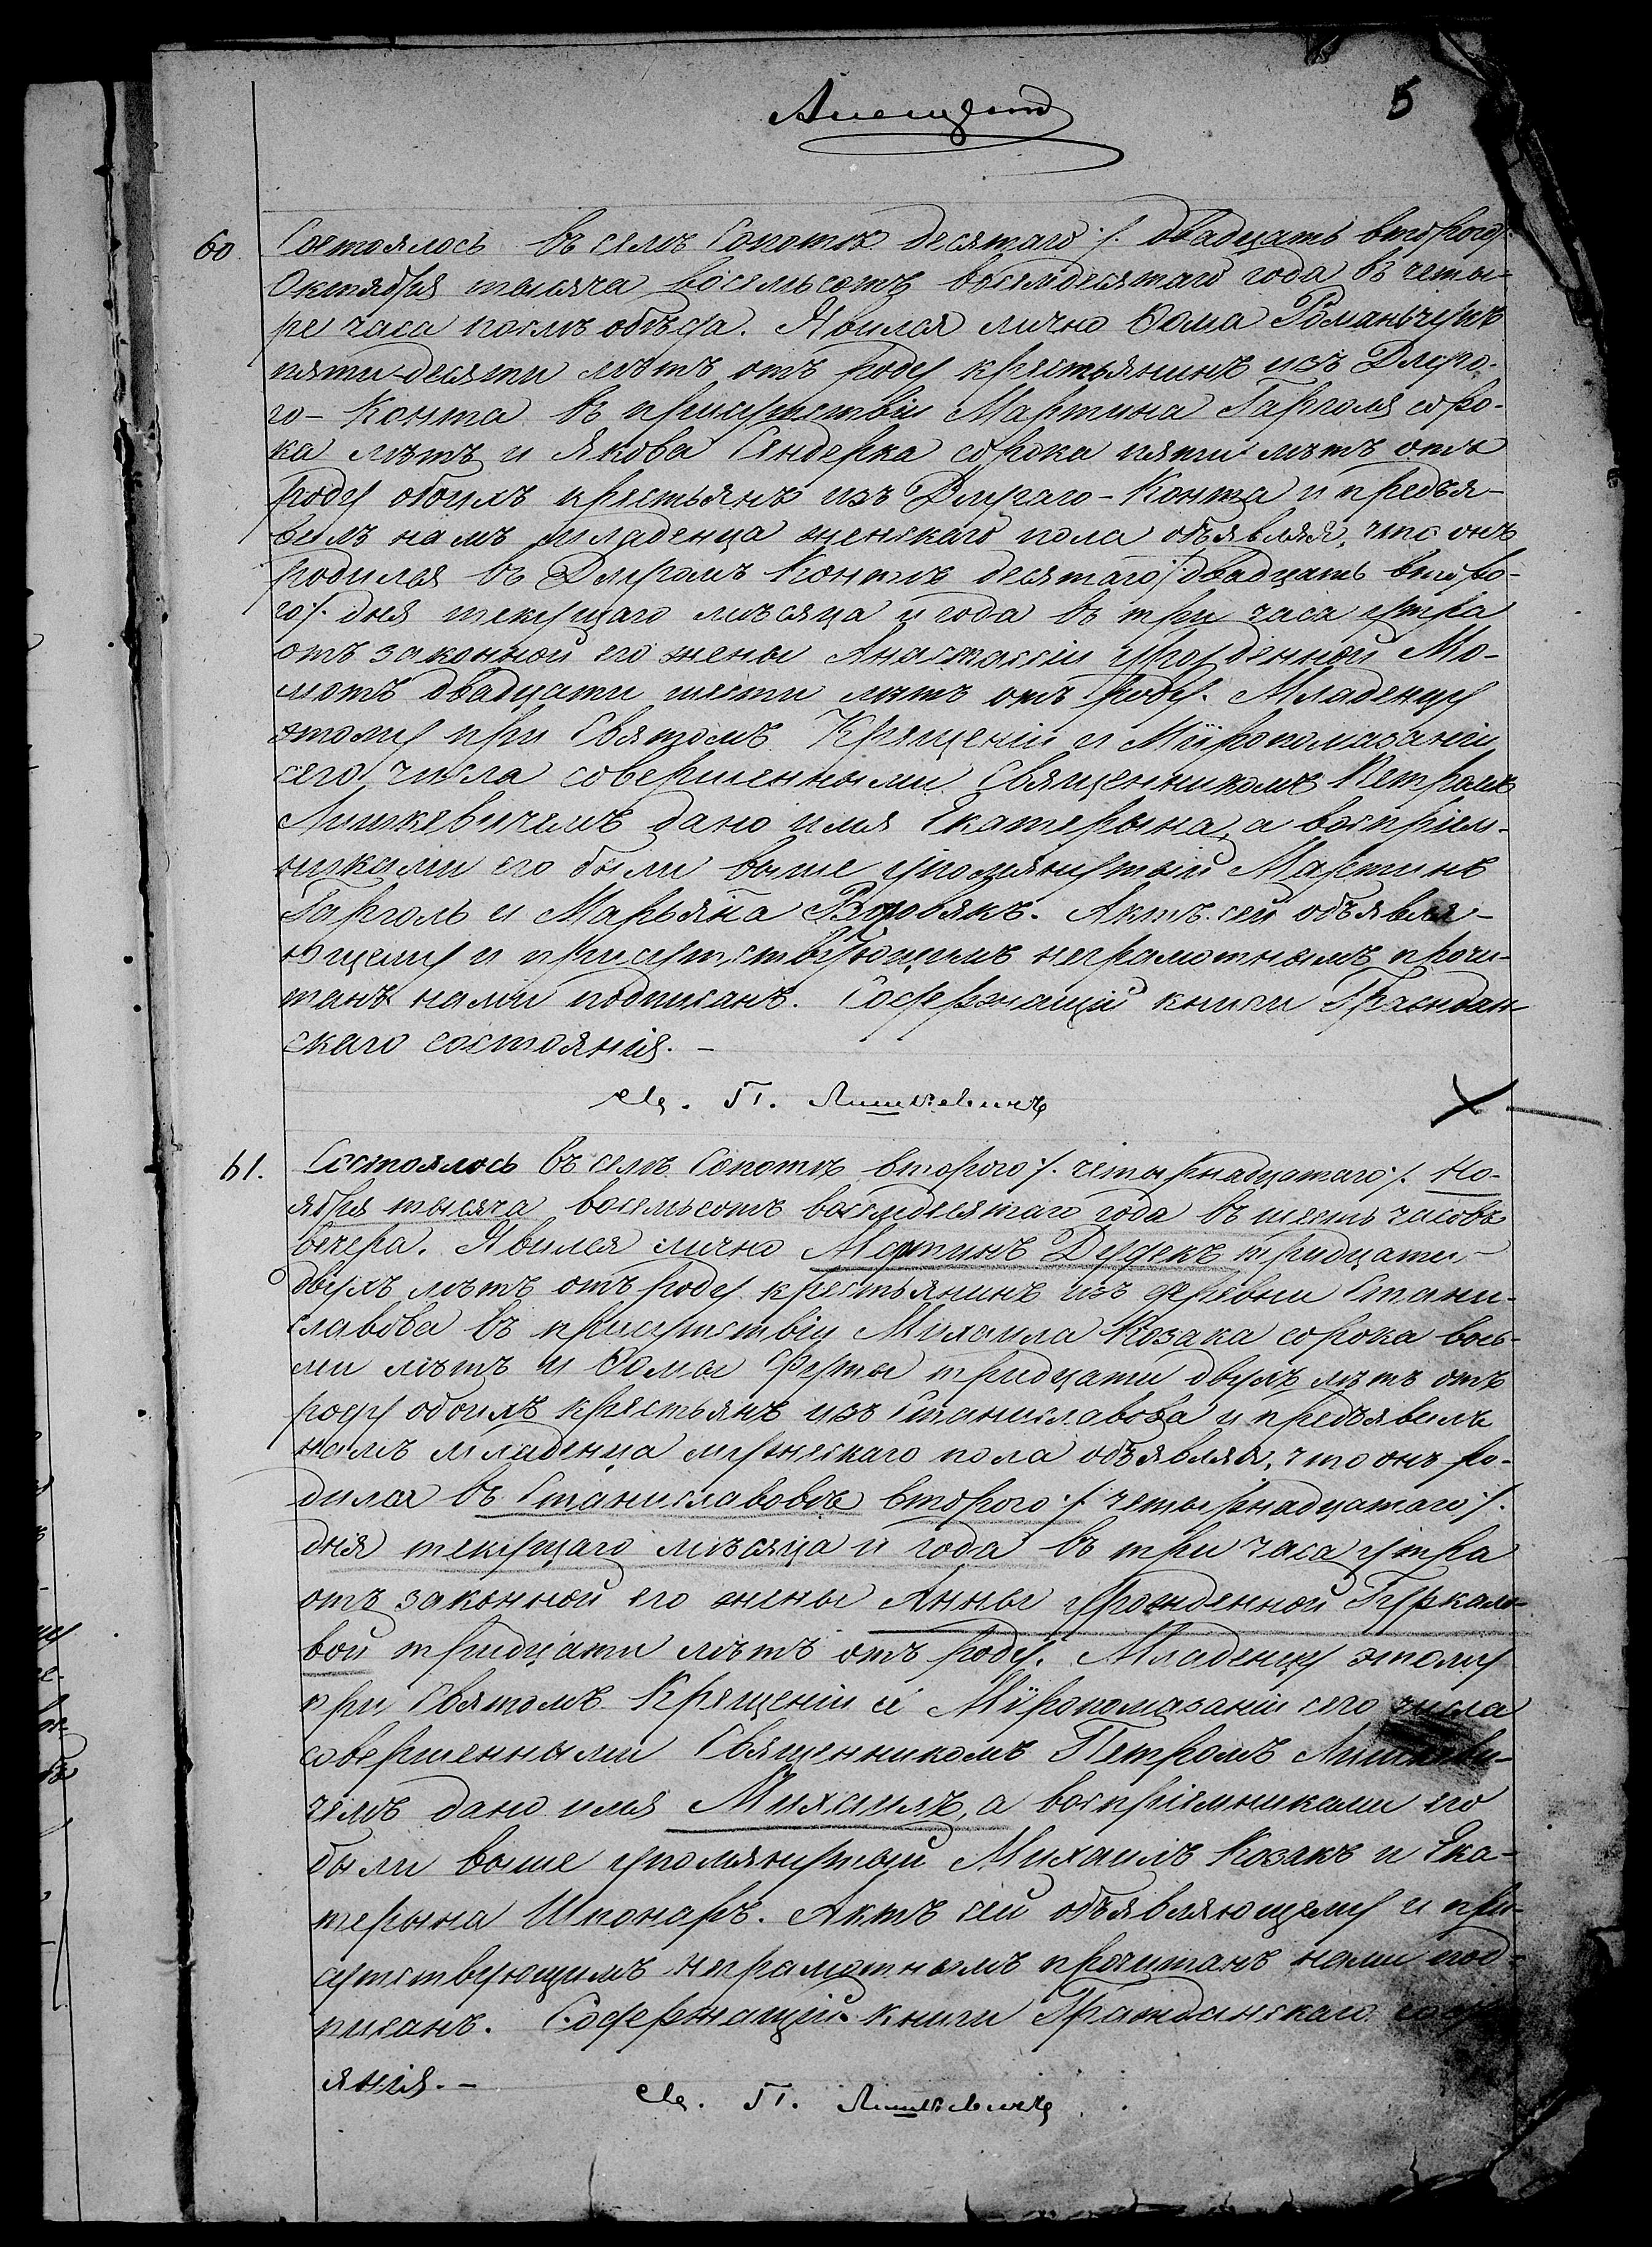 5
60. Состоялось въ селѣ Сопотѣ десятаго /. двадцать втораго /.
Октября тысяча восемьсотъ восемдесятаго года въ четы-
ре часа послѣ обѣда. Явился лично Ѳома Романьчукъ
пяти-десяти лѣтъ отъ роду крестьянинъ изъ Длуго-
го-Конта въ присутствіи Мартина Гарголя соро-
ка лѣтъ и Якова Сендерка сорока пяти лѣтъ отъ
роду обоихъ крестьянъ изъ Длугаго-Конта и предъя-
вилъ намъ младенца женскаго пола объявляя, что онъ
родился въ Длугомъ Контѣ десятаго /. двадцать второ-
го /. дня текущаго мѣсяца и года въ три часа утра
отъ законной его жены Анастасіи урожденной Мо-
мотъ двадцати шести лѣтъ отъ роду. Младенцу
этому при Святомъ Крещеніи и Мѵропомазаніи
сего числа совершенными Священникомъ Петромъ
Лишкевичемъ дано имя Екатерына, а воспріем-
никами его были выше упомянутый Мартинъ
Гарголь и Марьяна Воробякъ. Актъ сей объявля-
ющему и присутствующимъ неграмотнымъ прочи-
танъ нами подписанъ. Содержащій книги Граждан-
скаго состоянія. -
Св. П. Лишкевичъ
61. Состоялось въ селѣ Сопотѣ втораго /. четырнадцатаго /. Но-
ября тысяча восемьсотъ восемдесятаго года въ шесть часовъ
вечера. Явился лично Мартинъ Дудекъ тридцати-
двухъ лѣтъ отъ роду крестьянинъ изъ деревни Стани-
славова въ присутствіи Михаила Козака сорока вось-
ми лѣтъ и Ѳомы Фурты тридцати двухъ лѣтъ отъ
роду обоихъ крестьянъ изъ Станиславова и предъявилъ
намъ младенца мужескаго пола объявляя, что онъ ро-
дился въ Станиславовѣ втораго /. четырнадцатаго /.
дня текущаго мѣсяца и года въ три часа утра
отъ законной его жены Анны урожденной Гуркало-
вой тридцати лѣтъ отъ роду. Младенцу этому
при Святомъ Крещеніи и Мѵропомазаніи сего числа
совершенными Священникомъ Петромъ Лишкеви-
чемъ дано имя Михаилъ, а воспріемниками его
были выше упомянутый Михаилъ Козакъ и Ека-
терына Шпонаръ. Актъ сей объявляющему и при-
сутствующимъ неграмотнымъ прочитанъ нами под-
писанъ. Содержащій книги Гражданскаго состо-
янія. -
Св. П. Лишкевичъ